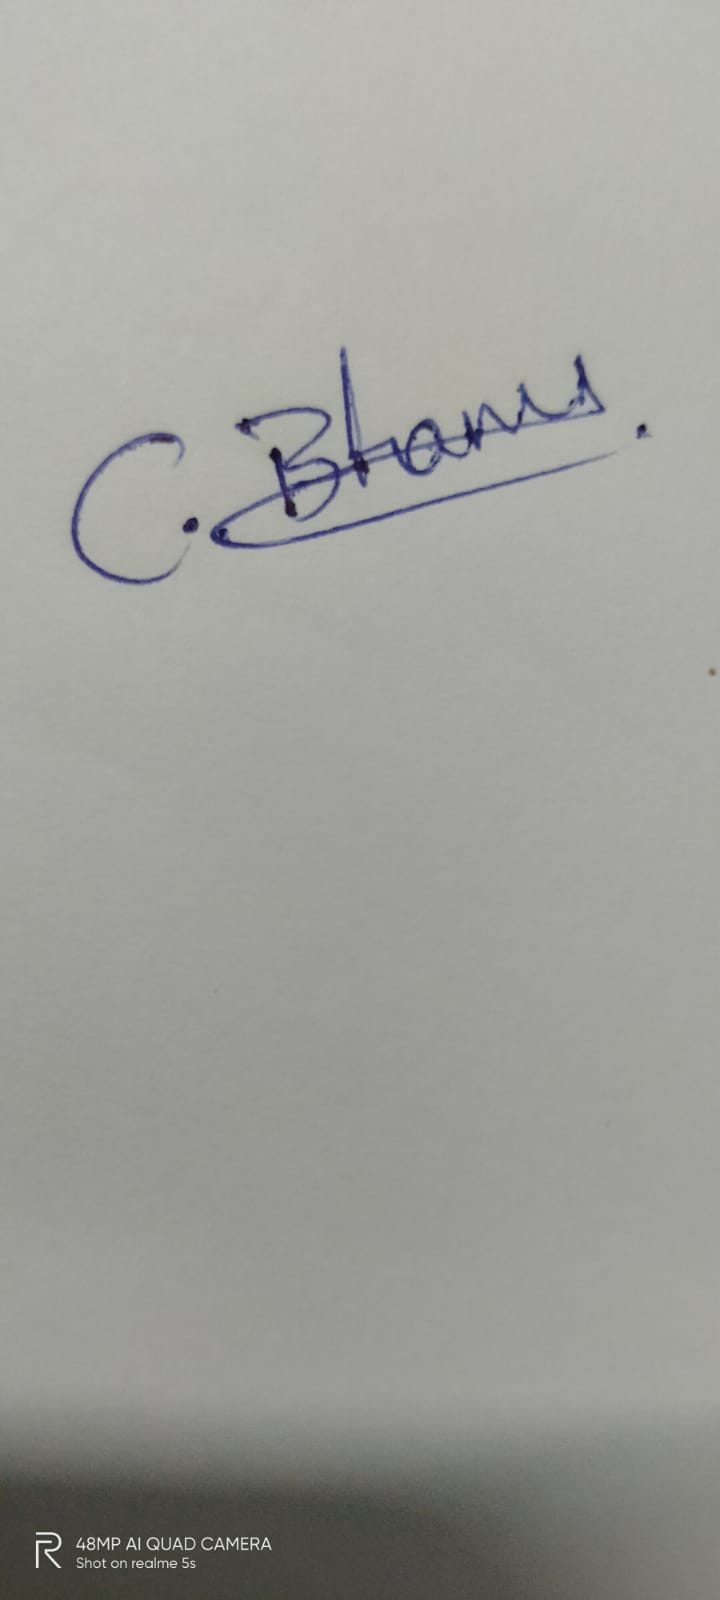 C. Bhanu.
48MP AI QUAD CAMERA
Shot on realme 5s